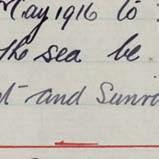 May 1916 to
the sea be
and